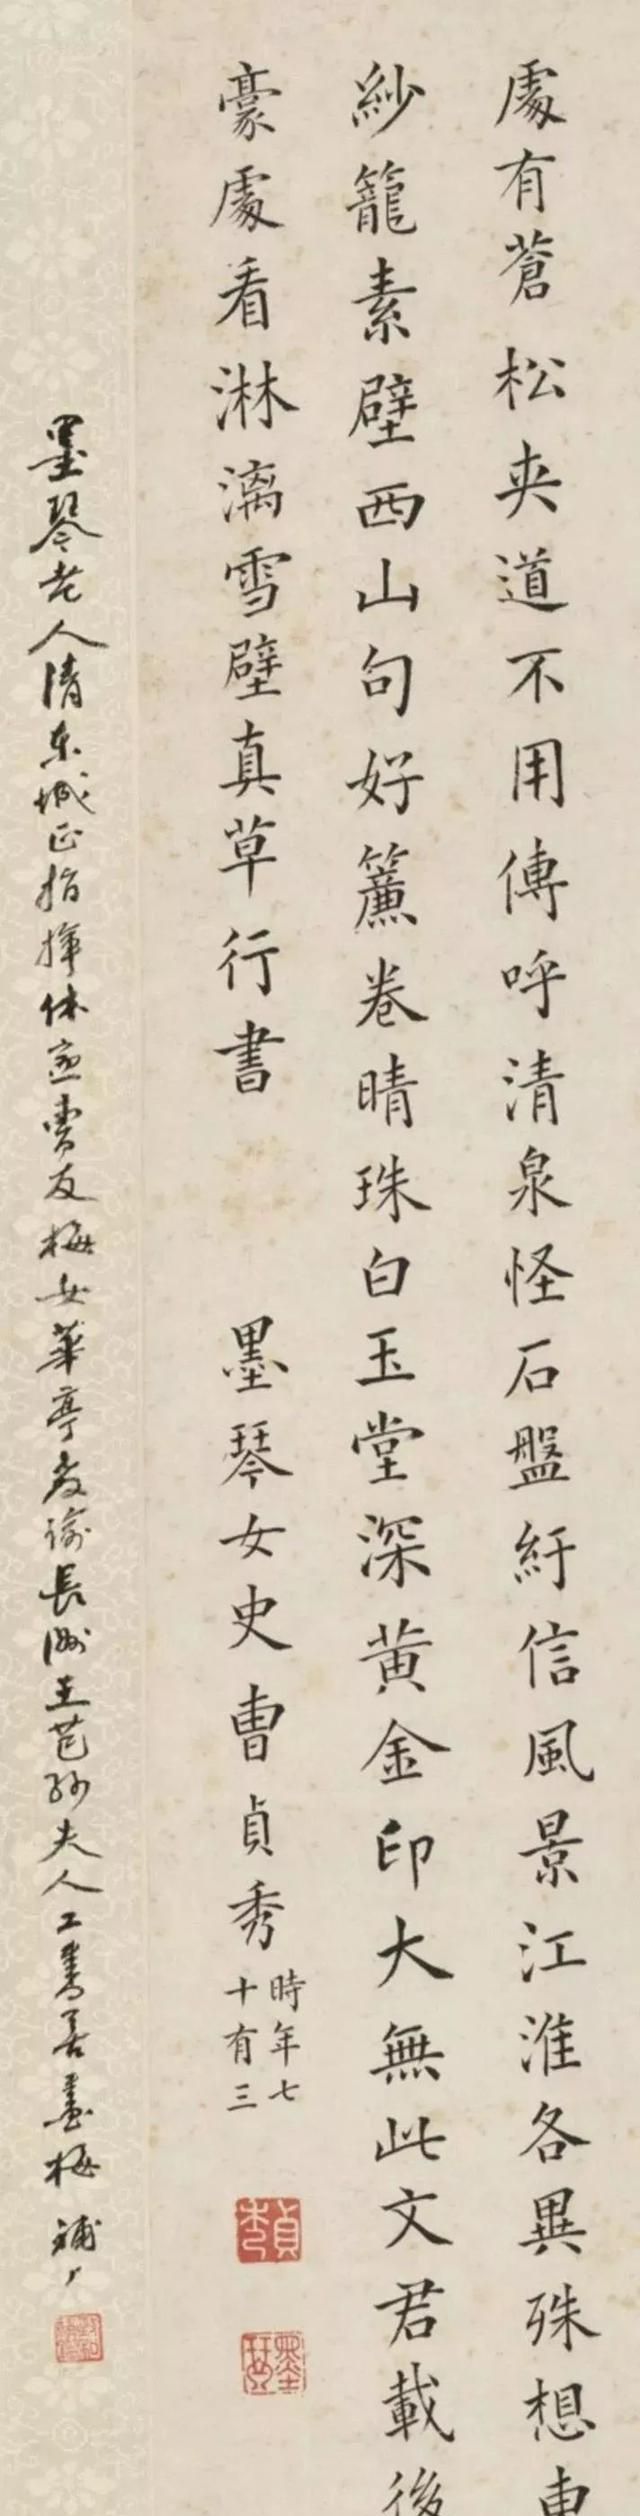 處有蒼松夾道不用傳呼清泉怪石盤紆信風景江淮各異殊想東
紗籠素壁西山句好簾卷晴珠白玉堂深黄金印大無此文君載後
豪處看淋漓雪壁真草行書 墨琴女史曹貞秀
時年七
十有三
貞秀
墨琴
墨琴老人清東城正指揮休寧曹友梅女華亭教諭長洲王芑孙夫人工書善畫梅